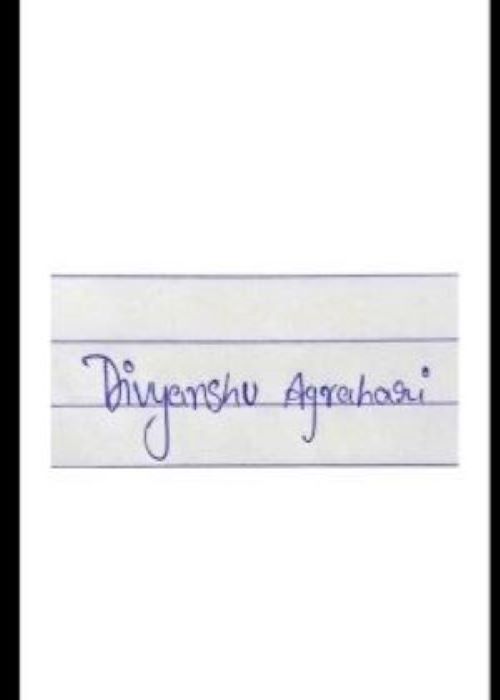 Divyanshu Agrahari